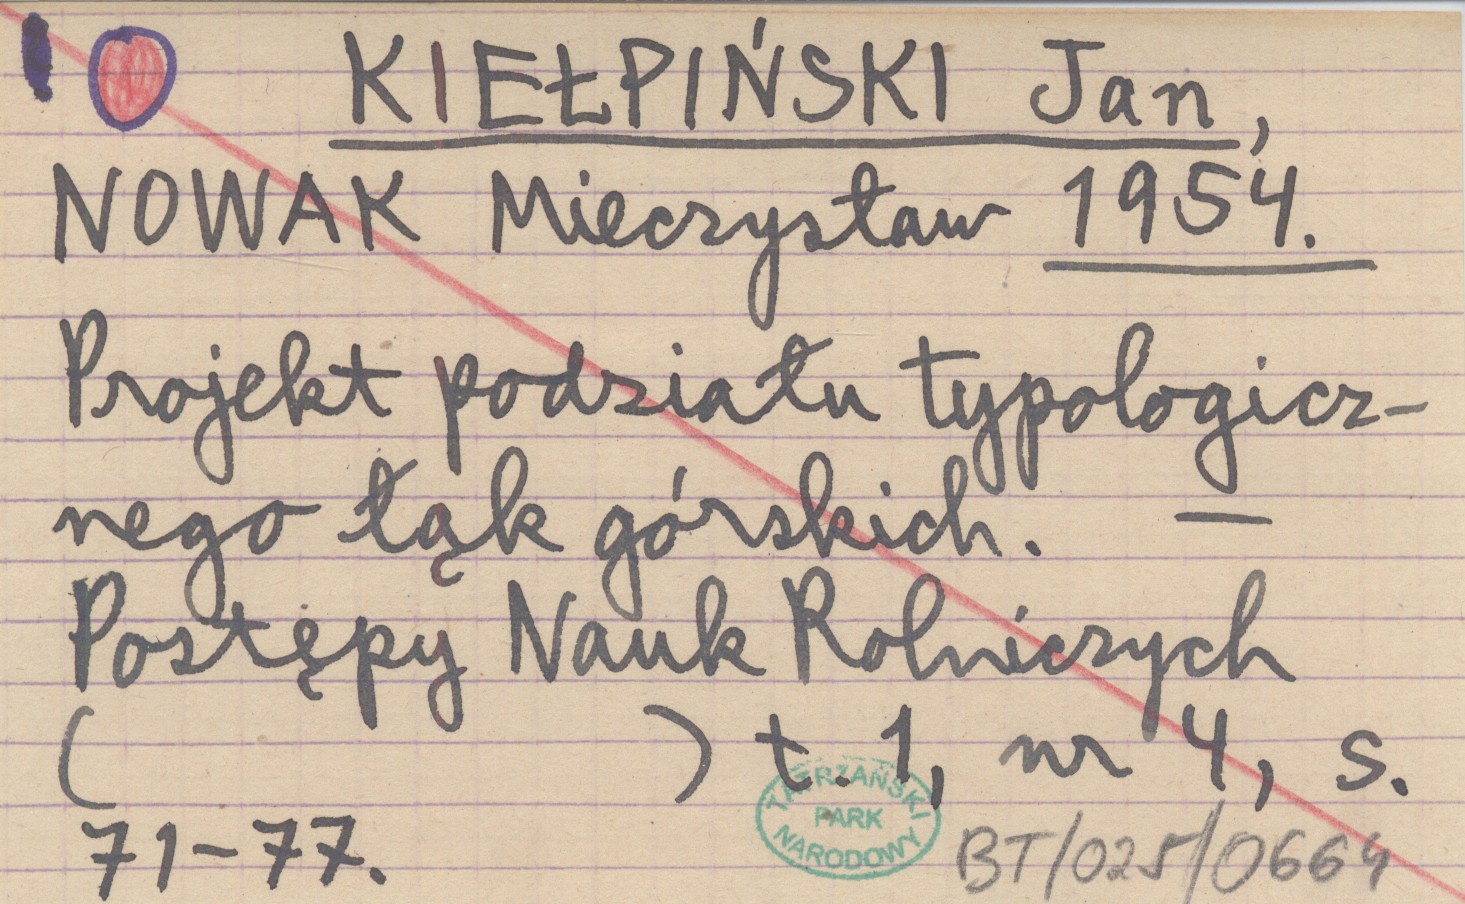 KIEŁPIŃSKI Jan,
NOWAK Mieczysław 1954.
Projekt podziału typologicz-
nego łąk górskich. —
Postępy Nauk Rolniczych
( ) t. 1, nr 4, s.
71-77.
TATRZAŃSKI
PARK
NARODOWY
BT/025/0664